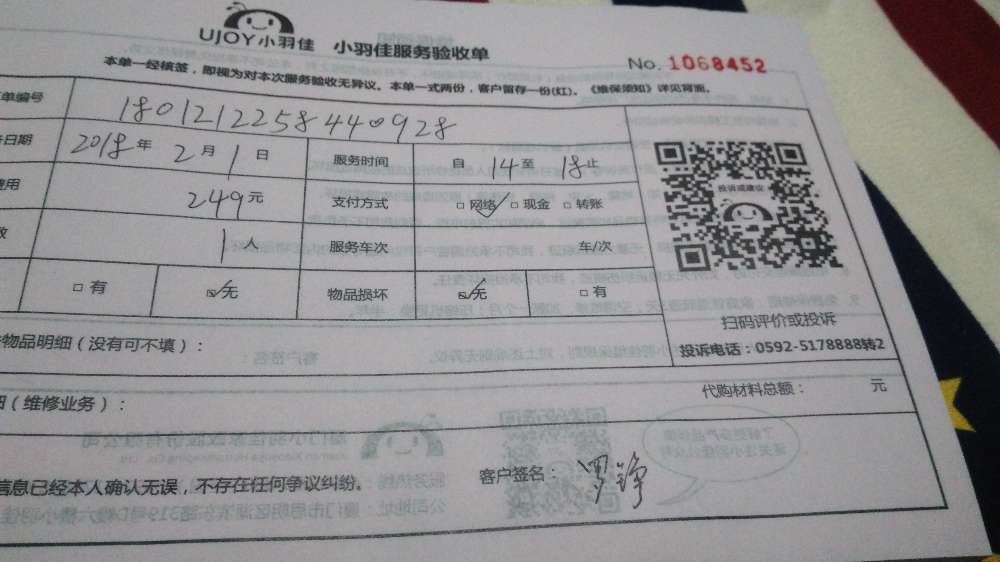 UJOY小羽佳 小羽佳服务验收单
No. 1068452
本单一经核签，即视为对本次服务验收无异议。本单一式两份，客户留存一份(红)。《维保须知》详见背面。
单编号 1801212258440928
日期 2018年2月1日 服务时间 自14至18止
费用 249元 支付方式 □网络 □现金 □转账
数 1人 服务车次 车/次
□有 □无 物品损坏 □无 □有
投诉或建议
扫码评价或投诉
投诉电话：0592-5178888转2
物品明细（没有可不填）：
代购材料总额： 元
细（维修业务）：
信息已经本人确认无误，不存在任何争议纠纷。 客户签名：罗铮